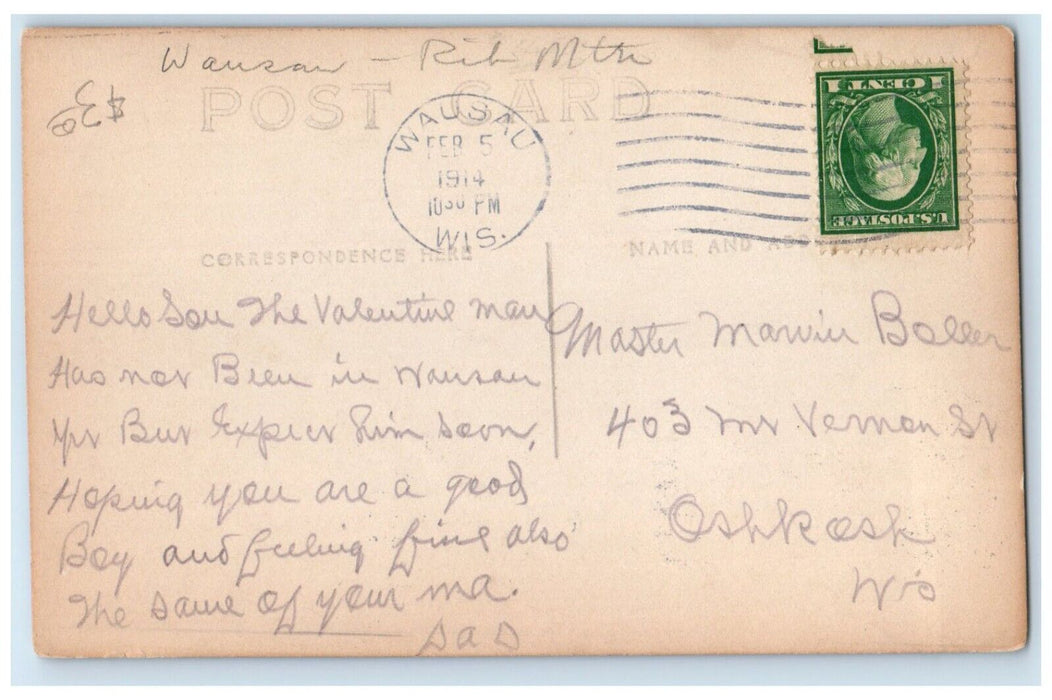 Wausau - Rib Mtn
$3
POST CARD
WAUSAU
FEB 5
1914
1030 PM
WIS.
1 CENT 1
U.S. POSTAGE
CORRESPONDENCE HERE
NAME AND ADD
Hello Son The Valentine man
Has not Been in Wausau
Yet But Expect him soon,
Hoping you are a good
Boy and feeling fine also
The same of your ma.
DaD
Master Marvin Boller
403 Mt Vernon St
Oshkosh
Wis